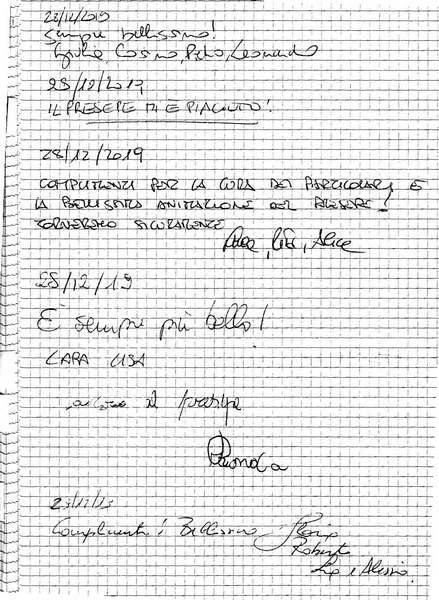 23/12/2019
Sempre bellissimo!
Giulia, Cosimo, Pietro, Leonardo
28/12/2019
IL PRESEPE MI È PIACIUTO!
28/12/2019
COMPLIMENTI PER LA CURA DEI PARTICOLARI E
LA BELLISSIMA ANIMAZIONE DEL PRESEPE!
TORNEREMO SICURAMENTE
Alice
28/12/19
È sempre più bello!
LARA LISA
il presepe
23/12/19
Complimenti! Bellissimo
Roberto
e Alessio